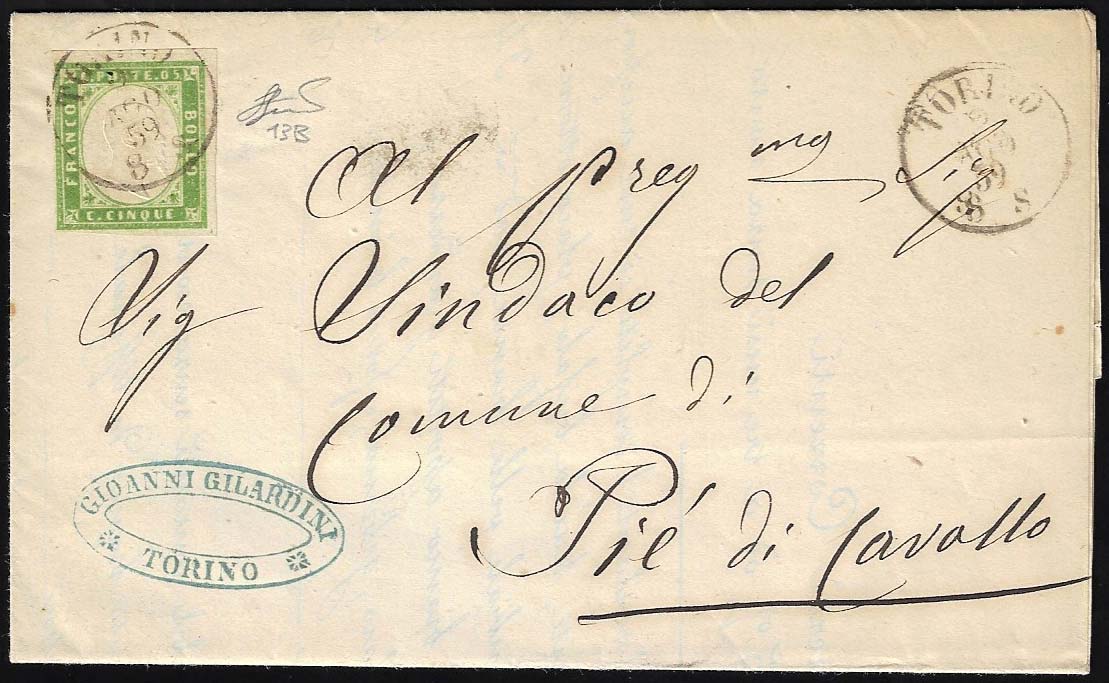 POSTE.05
FRANCO
BOLLO
C. CINQUE
TORINO
AGO
59
8 S
13B
TORINO
59
8 S
Al Preg mo Sig
Sig Sindaco del
Comune di
Pié di Cavallo
GIOANNI GILARDINI
TORINO